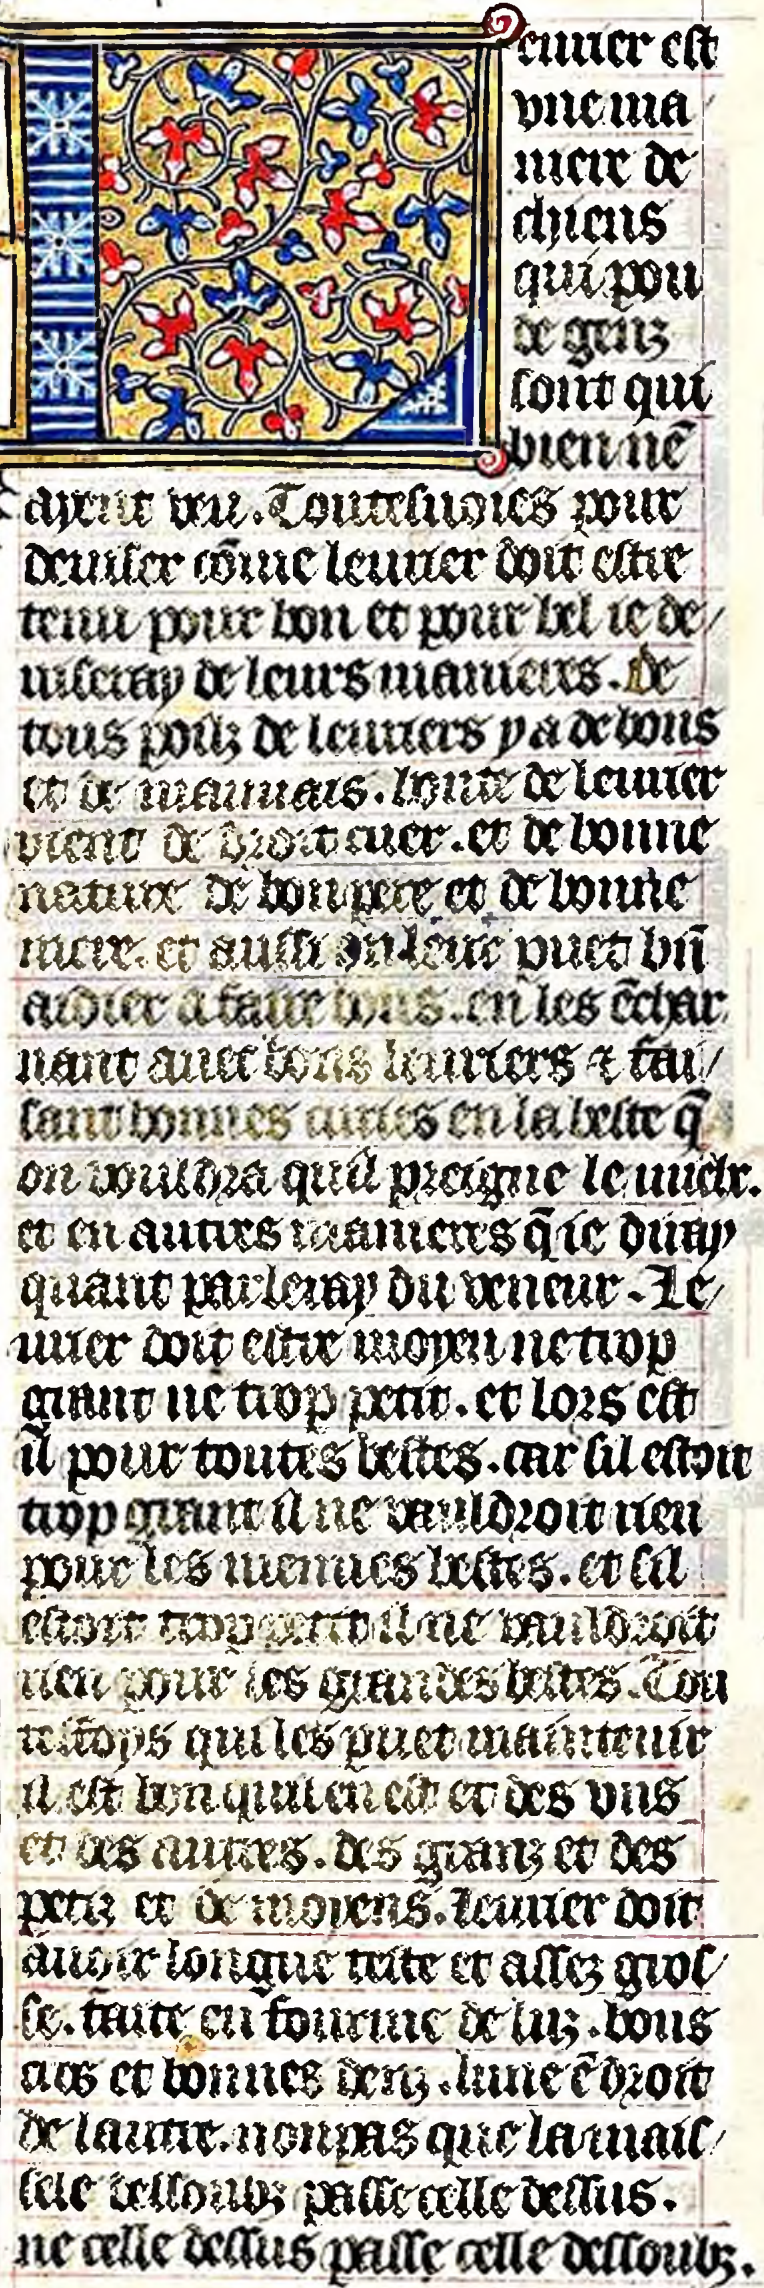 Leurier est
vne ma
niere de
chiens
qui pou
de genz
sont qui
bien nē
ayent veu. Toutesuoies pour
deuiser cōme leurier doit estre
tenu pour bon et pour bel ie de/
uiseray de leurs manieres. De
tous poilz de leuriers y a de bons
et de mauuais. bonte de leurier
vient de droit cuer. et de bonne
nature de bon pere et de bonne
mere. et aussi on leur puet bn̄
aidier a faire bons. en les ēchar
nant auec bons leuriers & fai/
sant bonnes curies en la beste q̄
on vouldra quil preigne le mielx.
et en autres manieres q̄ ie diray
quant parleray du veneur. Le/
urier doit estre moyen ne trop
grant ne trop petit. et lors est
il pour toutes bestes. car sil estoit
trop grant il ne vauldroit rien
pour les menues bestes. et sil
estoit trop petit il ne vauldroit
rien pour les grandes bestes. Tou
teffoys qui les puet maintenir
il est bon quil en eit et des vns
et des autres. des granz et des
petiz et de moyens. leurier doit
auoir longue teste et assez gros/
se. faite en fourme de luz. bons
cros et bonnes denz. lune ē droit
de lautre. non pas que la mais/
selle dessoubz passe celle dessus.
ne celle dessus passe celle dessoubz.